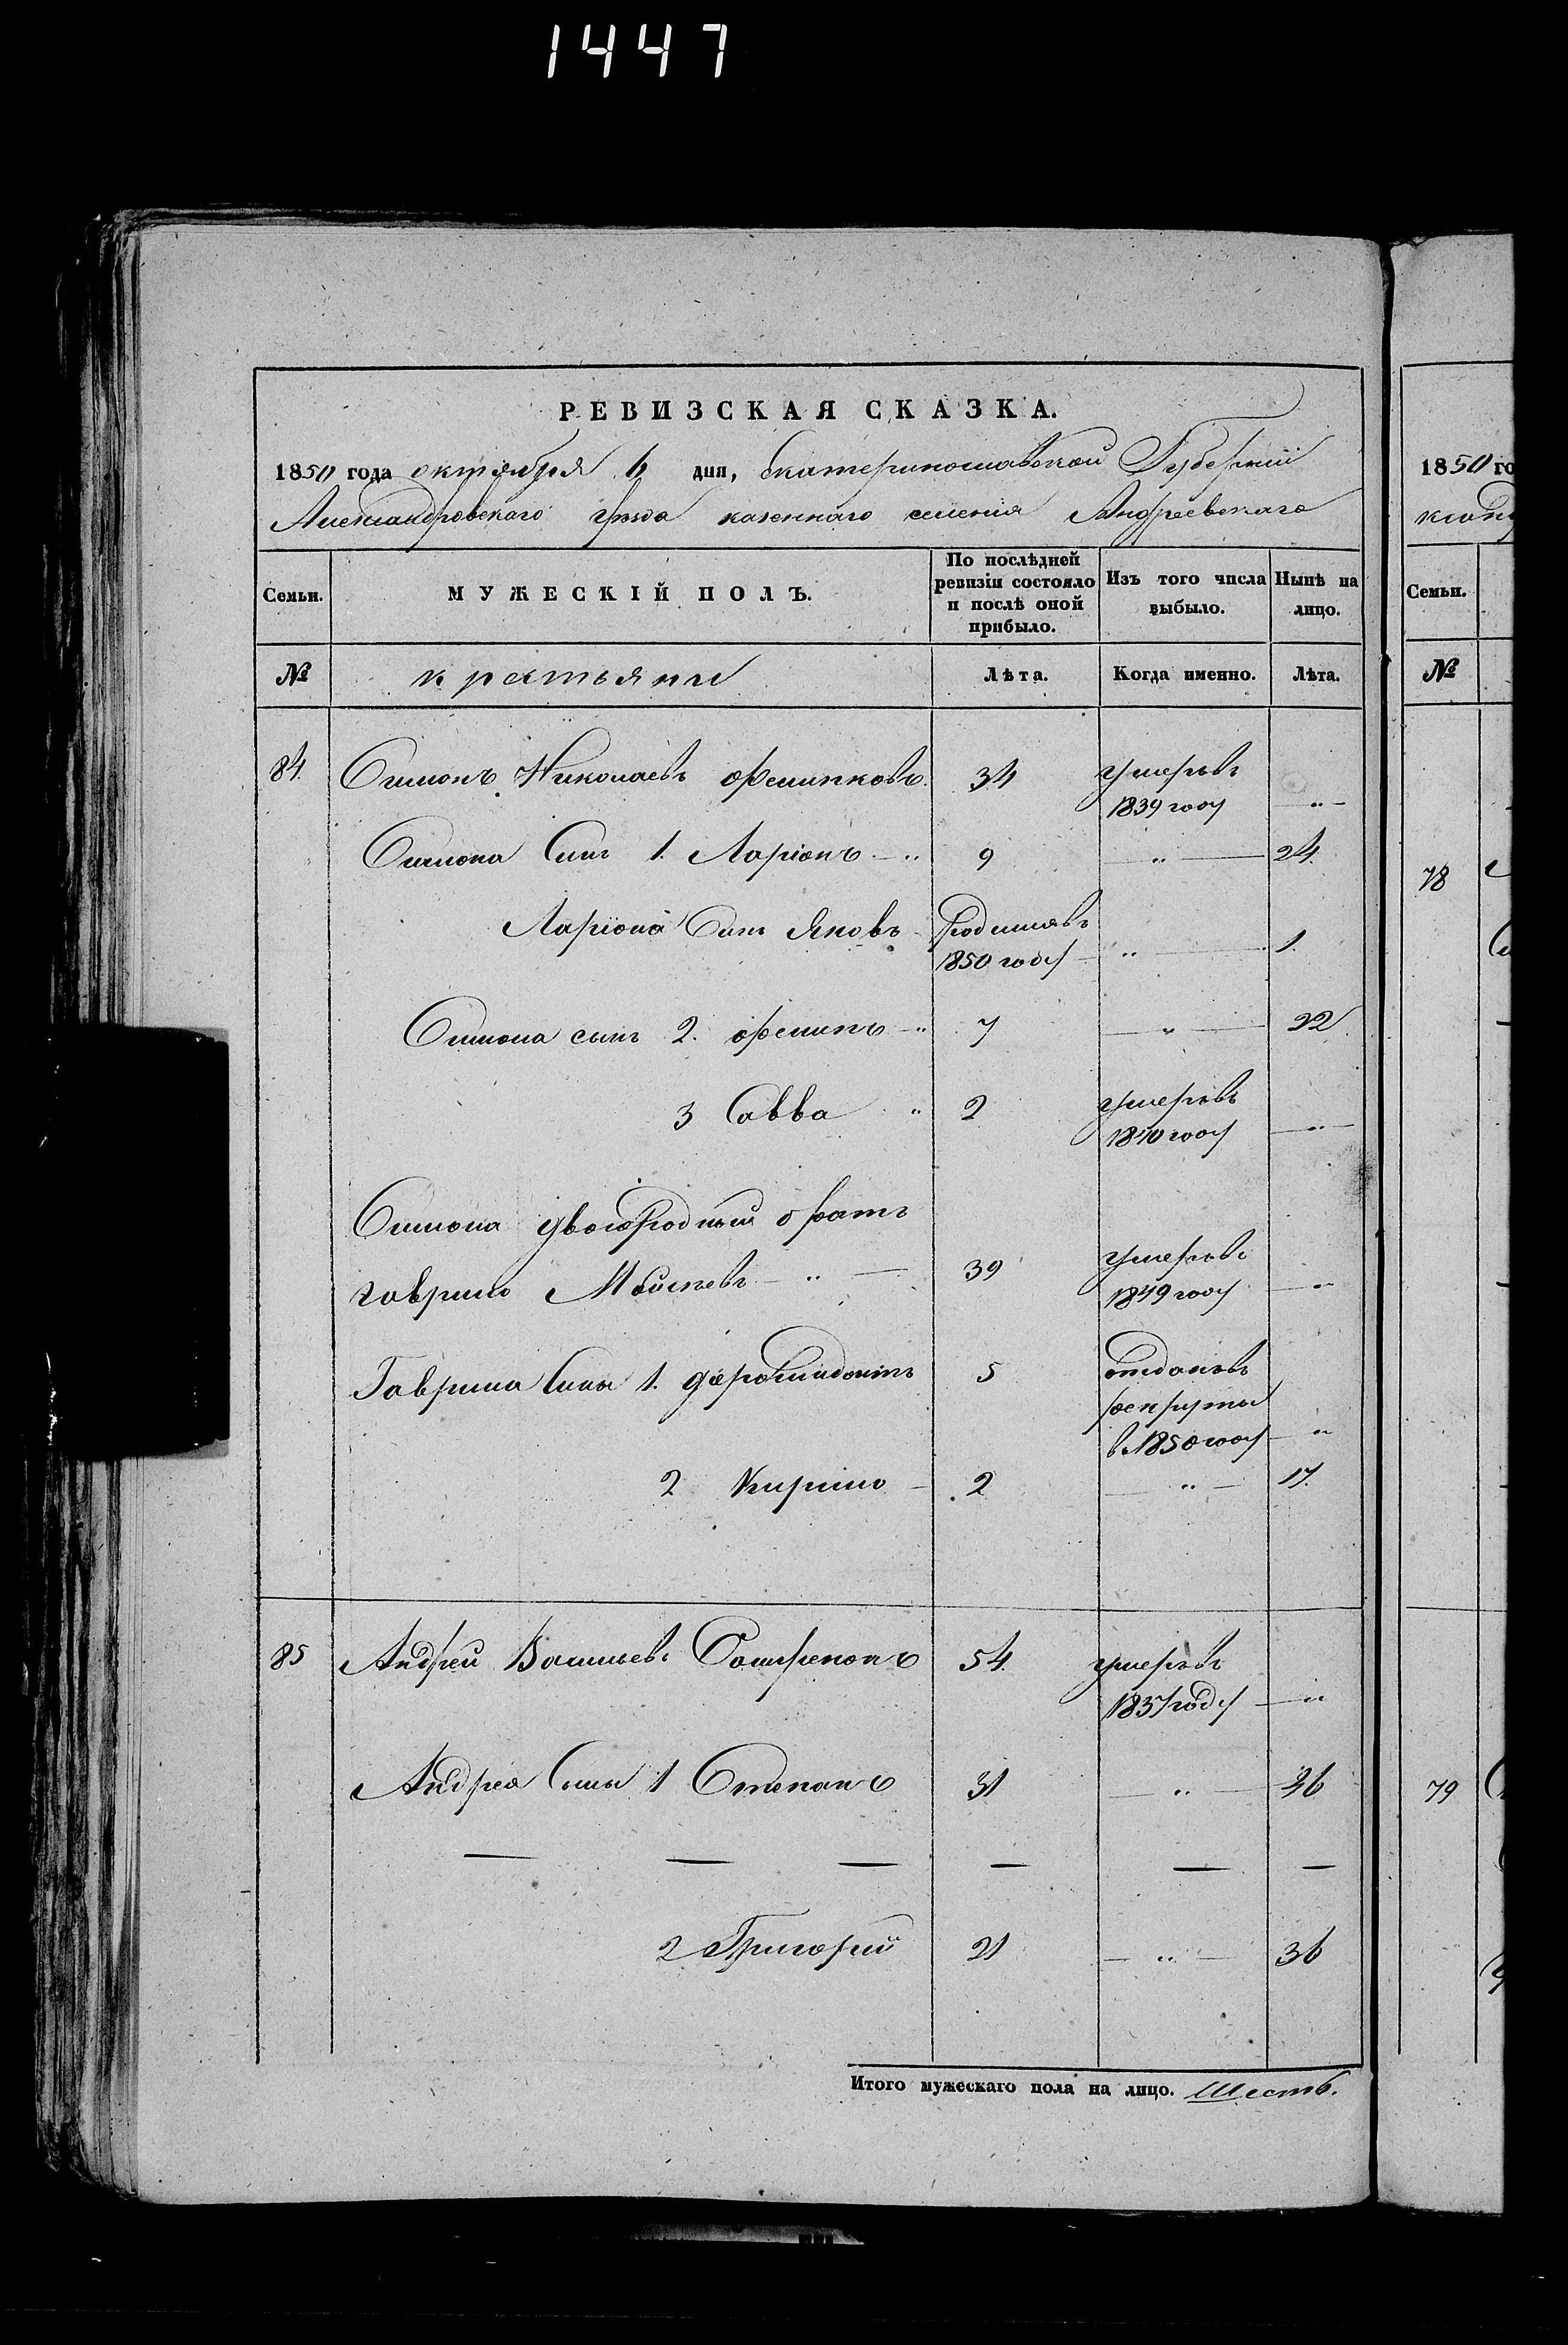 1447
РЕВИЗСКАЯ СКАЗКА.
1850 года октября 6 дня, Екатеринославской Губернии
Александровскаго уѣзда казеннаго селенія Андреевскаго
Семьи.
МУЖЕСКІЙ ПОЛЪ.
По послѣдней ревизіи состояло и послѣ оной прибыло.
Изъ того числа выбыло.
Нынѣ на лицо.
№ крестьяне Лѣта. Когда именно. Лѣта.
84. Симонъ Николаевъ 34 умеръ въ
1839 году "
Симона Сынъ 1. Ларіонъ " 9 " 24.
Ларіона Сынъ Яковъ Родился въ
1850 году " 1.
Симона сынъ 2. " 7 " 22
3 Савва " 2 умеръ въ
1840 году "
Симона двоюродный братъ
гаврило Моисѣевъ " 39 умеръ въ
1849 году "
Гаврила Сыны 1. 5 отданъ въ
рекруты
в 1850 году "
2 Кирило 2 " 17.
85 Андрей Васильевъ 54. умеръ въ
1837 году "
Андрея Сыны 1 Степанъ 31 " 46
2 Григорий 21 " 36
Итого мужескаго пола на лицо. Шесть.
1850 го
Семьи.
№
78
79